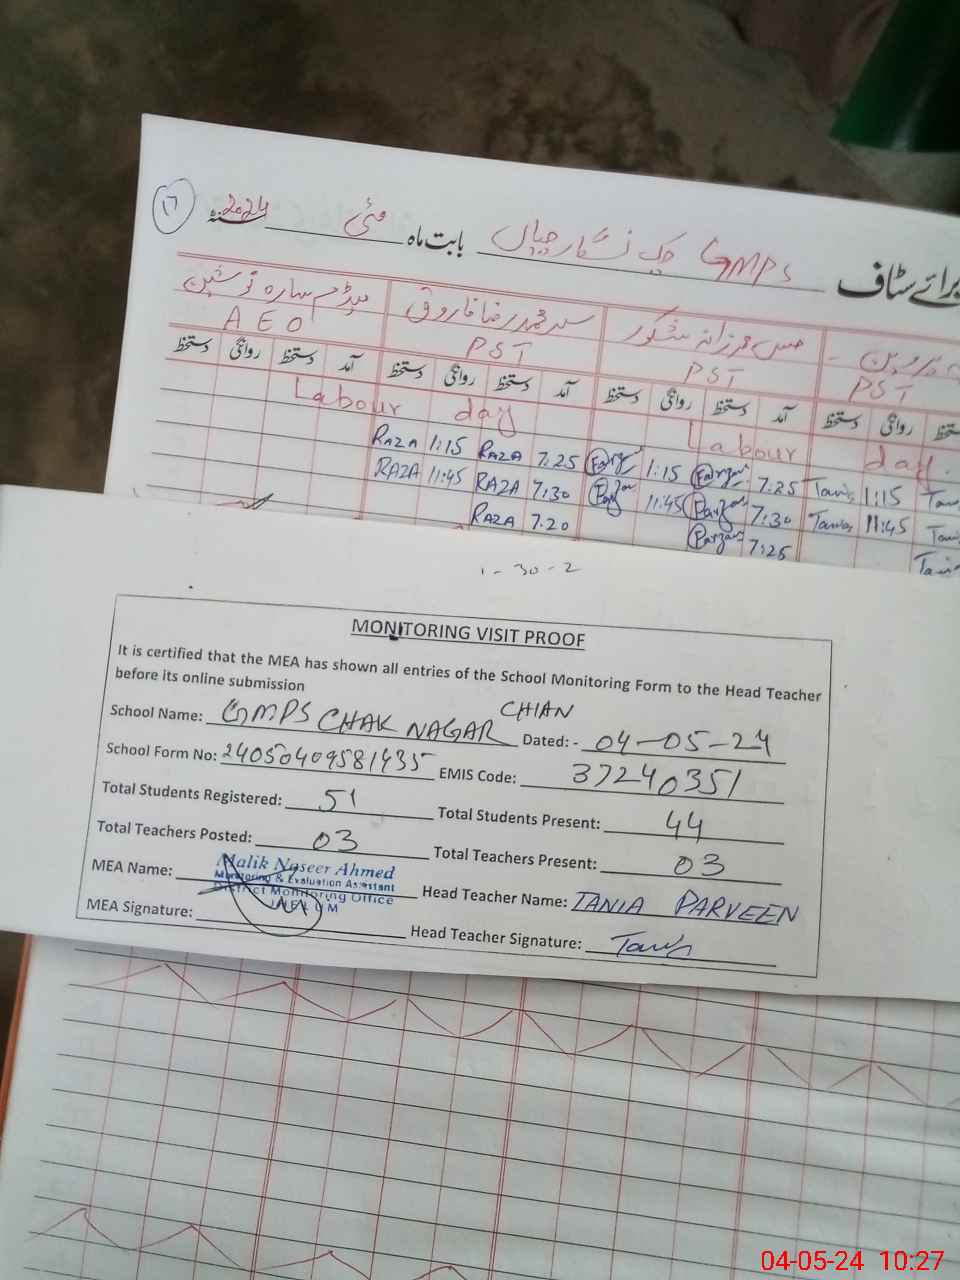 برائے سٹاف GMPS چک نگارچیاں بابت ماہ مئی سنہ 2024
مس فرزانہ شکور سید محمد رضا فاروق میڈم سارہ نوشین
PST PST PST AEO
دستخط روانگی دستخط آمد دستخط روانگی دستخط آمد دستخط روانگی دستخط آمد دستخط روانگی دستخط
Labour day Labour day.
RAZA 1:15 RAZA 7:25 1:15 7:25 Tania 1:15
RAZA 11:45 RAZA 7:30 11:45 7:30 Tania 11:45
RAZA 7.20 7:25
1-30-2
MONITORING VISIT PROOF
It is certified that the MEA has shown all entries of the School Monitoring Form to the Head Teacher
before its online submission
School Name: GMPS CHAK NAGAR CHIAN Dated: - 04-05-24
School Form No: 24050409581435 EMIS Code: 37240351
Total Students Registered: 51 Total Students Present: 44
Total Teachers Posted: 03 Total Teachers Present: 03
MEA Name: Malik Naseer Ahmed Head Teacher Name: TANIA PARVEEN
Monitoring & Evaluation Assistant
District Monitoring Office
JHELUM
MEA Signature: Head Teacher Signature: Tania
04-05-24 10:27